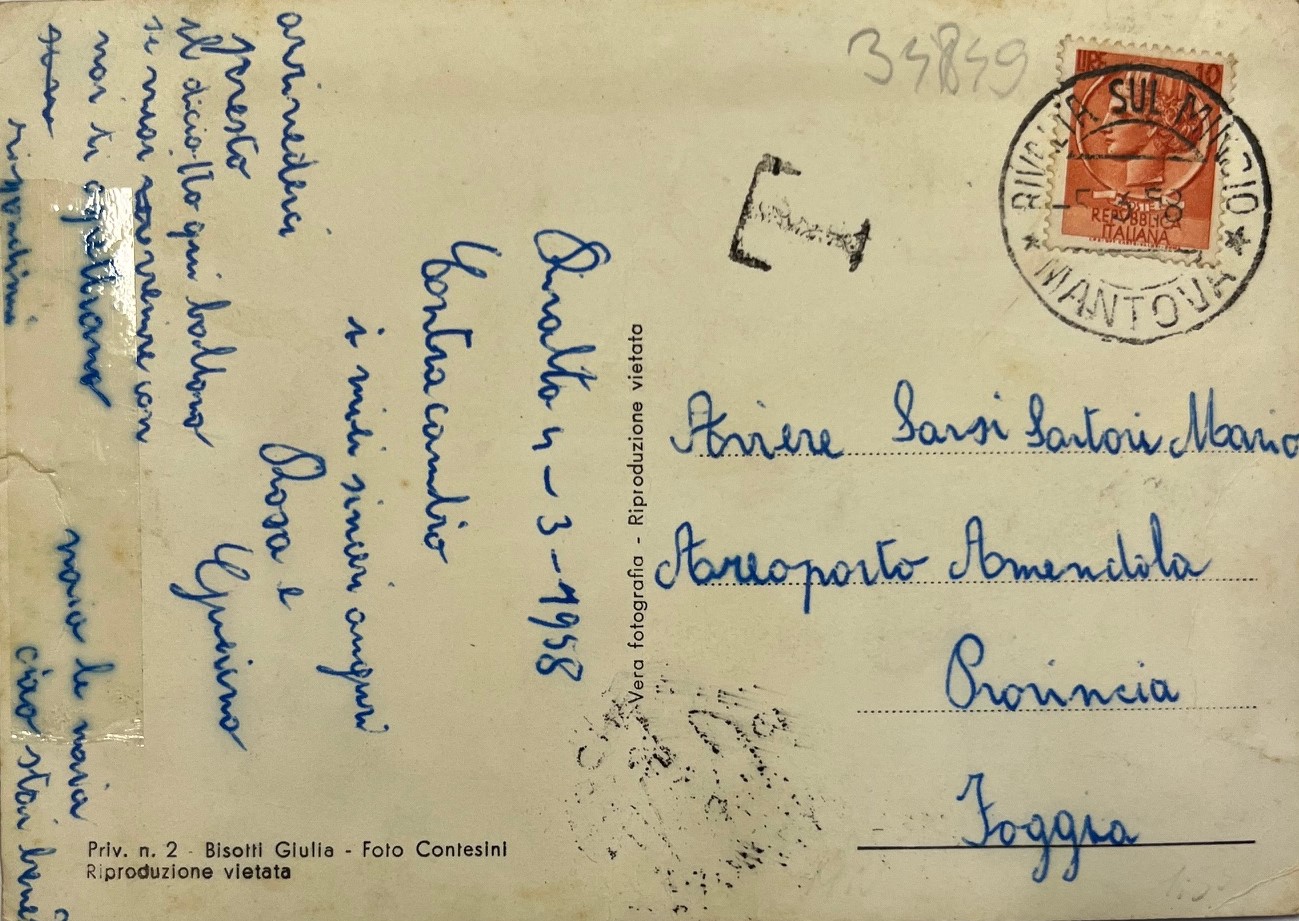 34849
LIRE 10
POSTE
REPUBBLICA
ITALIANA
RIVALTA SUL MINCIO
-5.3.58
* MANTOVA *
T
Rivalta 4-3-1958
Contracambio
i miei sinceri auguri
Rosa e
Guerino
arrivederci
presto
il diciotto qui ballono
se vuoi venire con
noi ti aspettiamo
rispondimi
ciao stai bene
Vera fotografia - Riproduzione vietata
Aviere Sarsi Sartori Mario
Areoporto Amendola
Provincia
Foggia
Priv. n. 2 - Bisotti Giulia - Foto Contesini
Riproduzione vietata